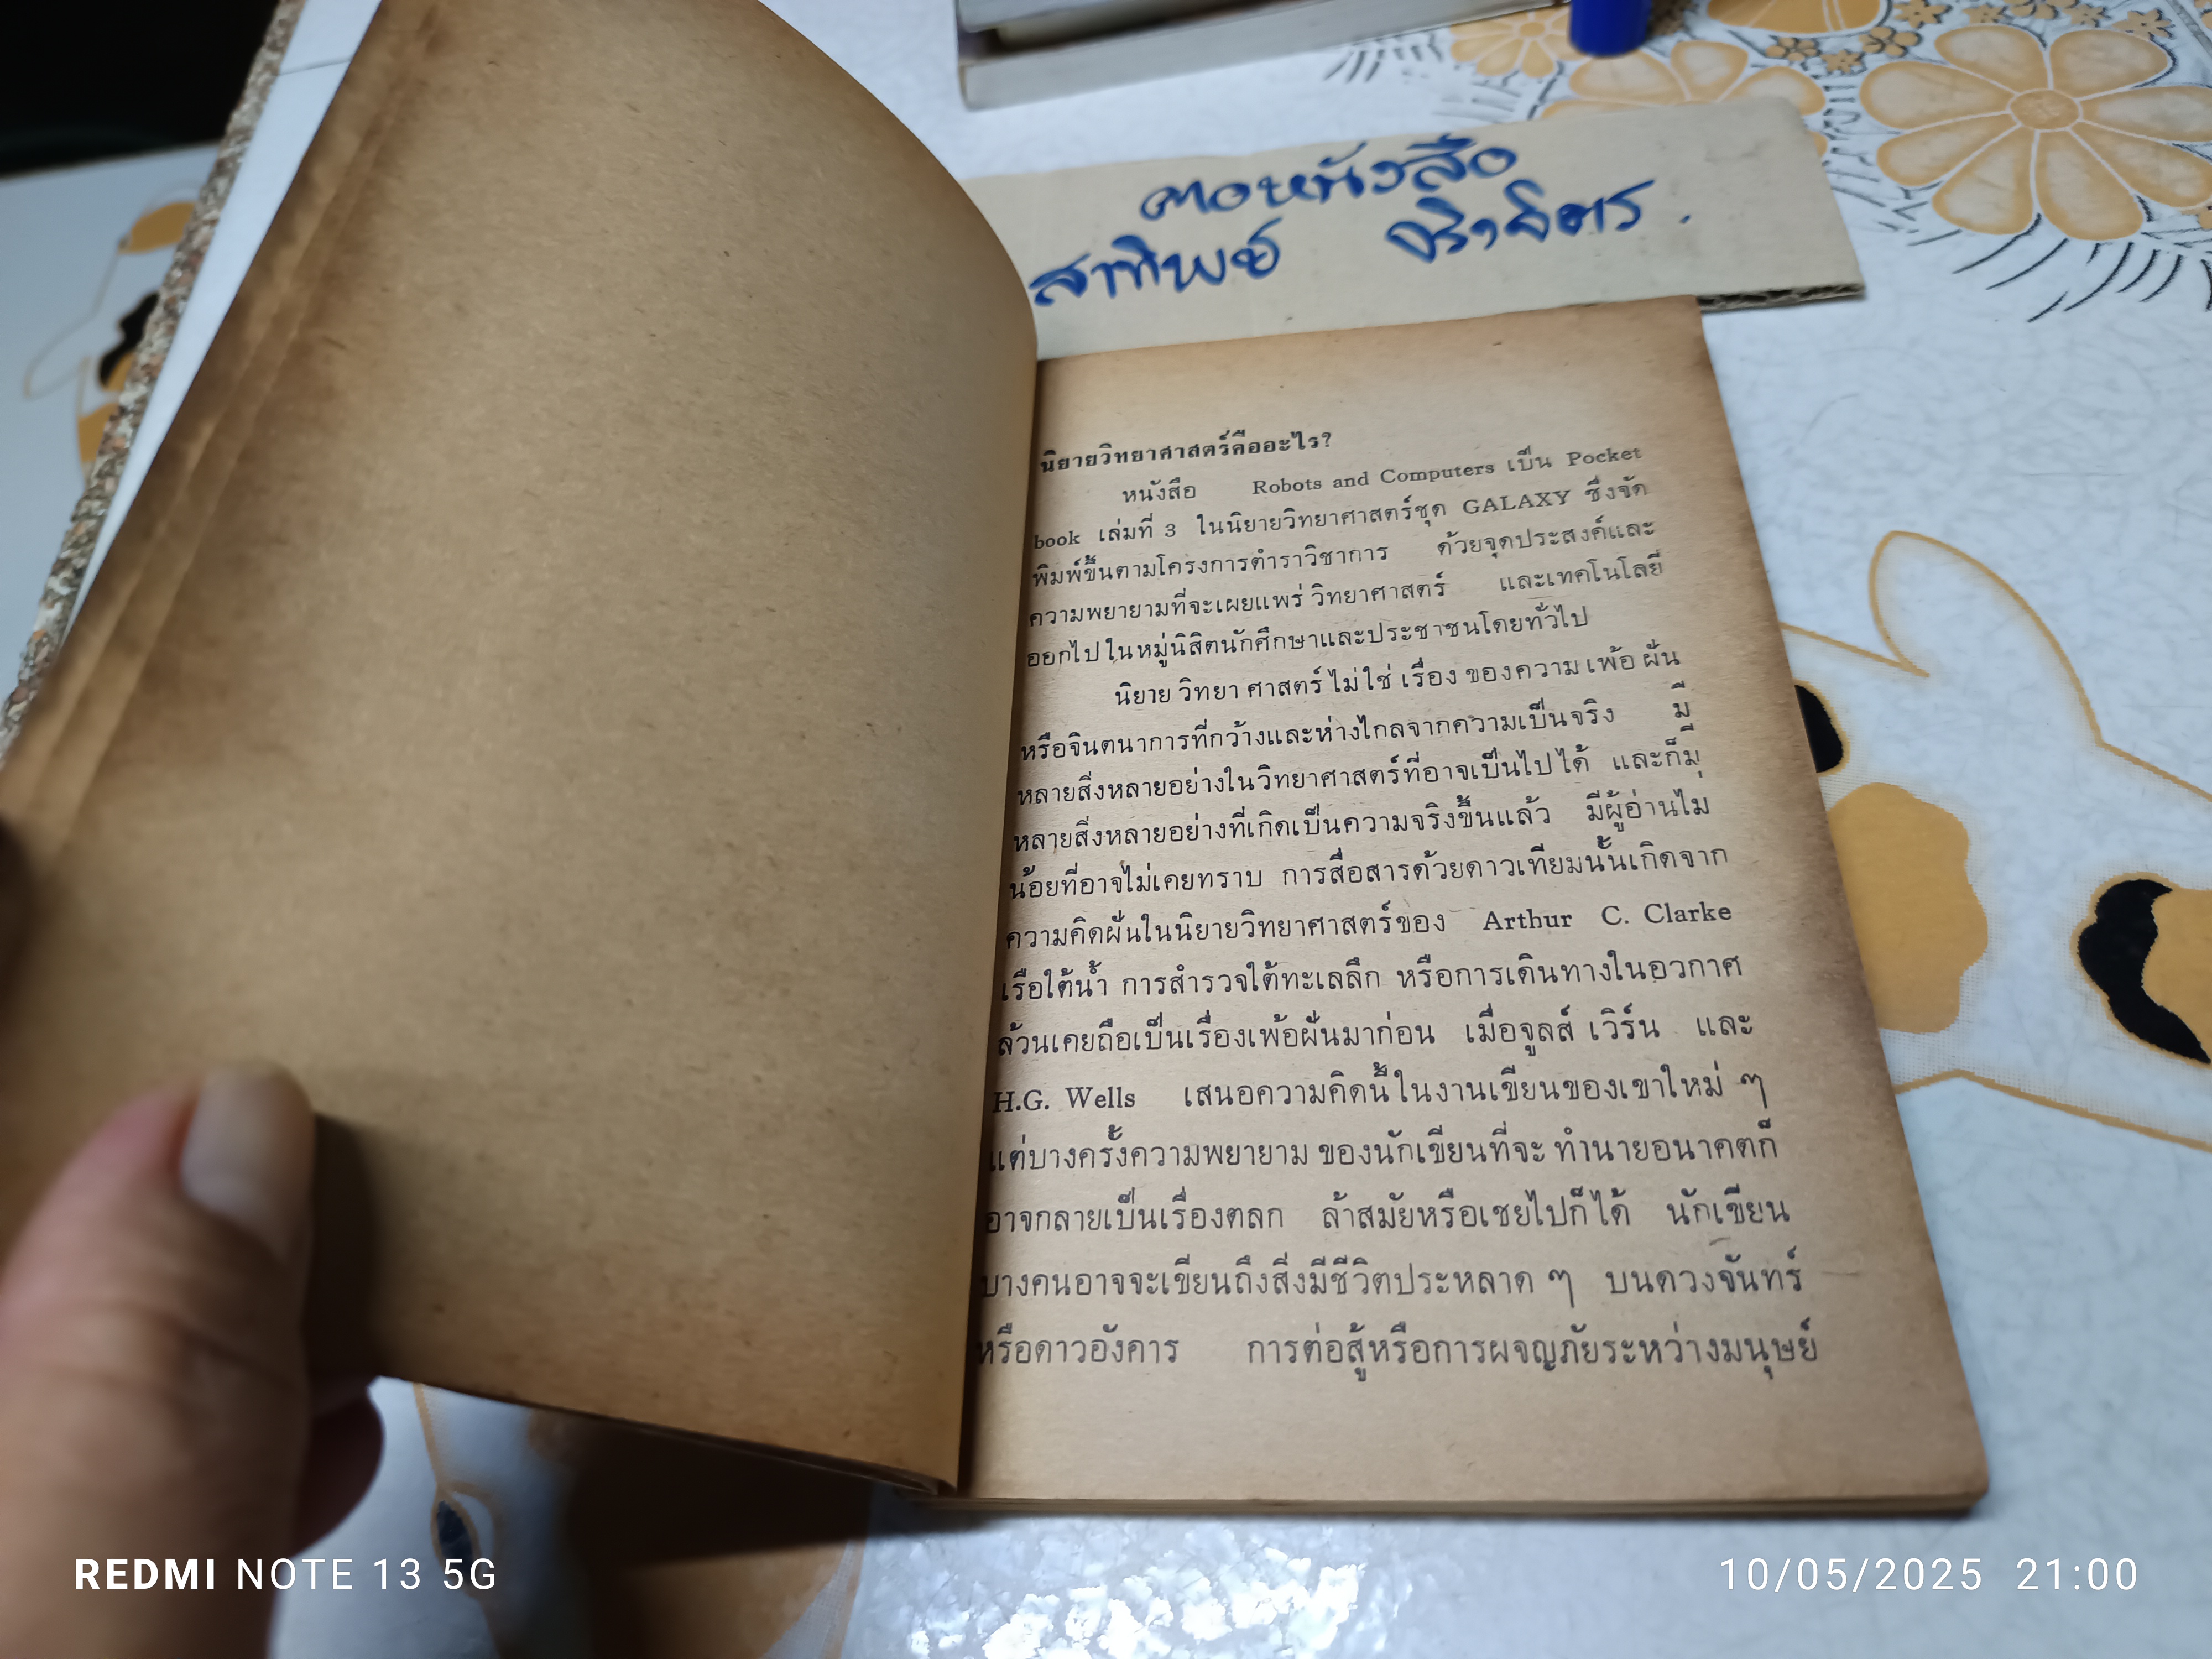 คอหนังสือ
สาทิพย์ จริงจิตร.
นิยายวิทยาศาสตร์คืออะไร?
หนังสือ Robots and Computers เป็น Pocket
book เล่มที่ 3 ในนิยายวิทยาศาสตร์ชุด GALAXY ซึ่งจัด
พิมพ์ขึ้นตามโครงการตำราวิชาการ ด้วยจุดประสงค์และ
ความพยายามที่จะเผยแพร่ วิทยาศาสตร์ และเทคโนโลยี
ออกไป ในหมู่นิสิตนักศึกษาและประชาชนโดยทั่วไป
นิยาย วิทยา ศาสตร์ ไม่ใช่ เรื่อง ของความ เพ้อ ฝัน
หรือจินตนาการที่กว้างและห่างไกลจากความเป็นจริง มี
หลายสิ่งหลายอย่างในวิทยาศาสตร์ที่อาจเป็นไปได้ และก็มี
หลายสิ่งหลายอย่างที่เกิดเป็นความจริงขึ้นแล้ว มีผู้อ่านไม่
น้อยที่อาจไม่เคยทราบ การสื่อสารด้วยดาวเทียมนั้นเกิดจาก
ความคิดฝันในนิยายวิทยาศาสตร์ของ Arthur C. Clarke
เรือใต้น้ำ การสำรวจใต้ทะเลลึก หรือการเดินทางในอวกาศ
ล้วนเคยถือเป็นเรื่องเพ้อฝันมาก่อน เมื่อจูลส์ เวิร์น และ
H.G. Wells เสนอความคิดนี้ในงานเขียนของเขาใหม่ ๆ
แต่บางครั้งความพยายาม ของนักเขียนที่จะ ทำนายอนาคตก็
อาจกลายเป็นเรื่องตลก ล้าสมัยหรือเชยไปก็ได้ นักเขียน
บางคนอาจจะเขียนถึงสิ่งมีชีวิตประหลาด ๆ บนดวงจันทร์
หรือดาวอังคาร การต่อสู้หรือการผจญภัยระหว่างมนุษย์
REDMI NOTE 13 5G
10/05/2025 21:00